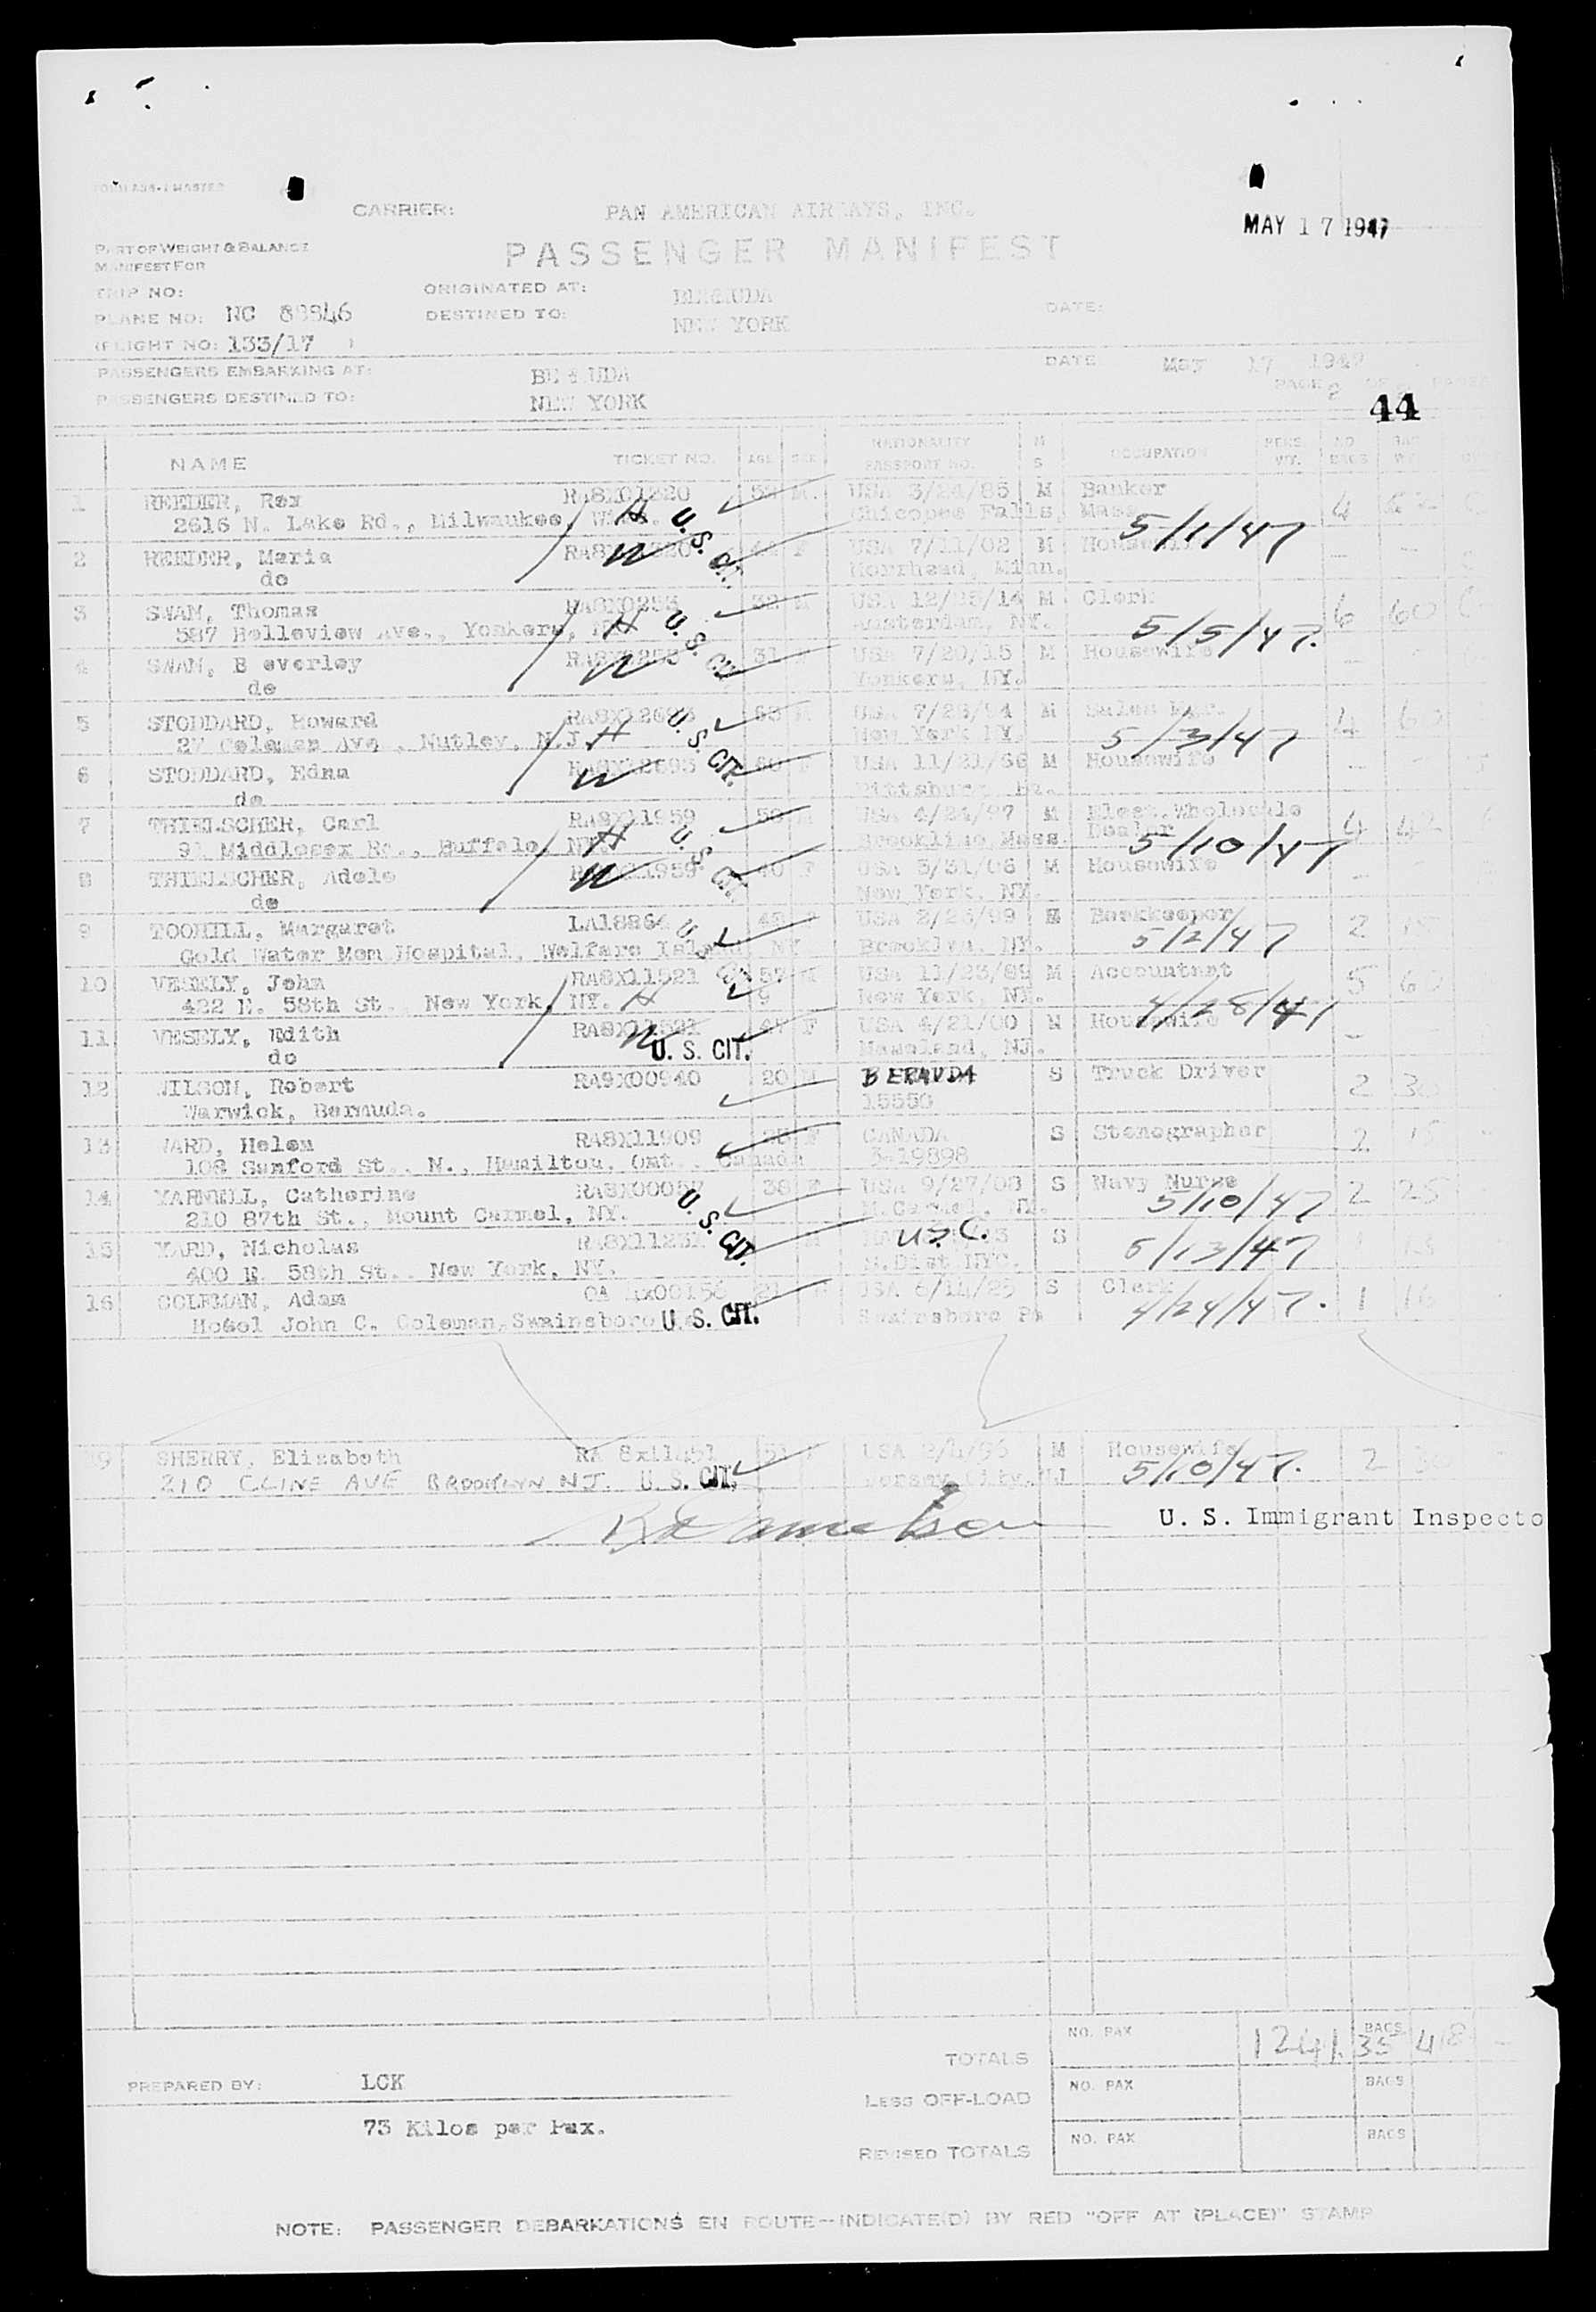 CARRIER: PAN AMERICAN AIRWAYS, INC.
MAY 17 1947
PART OF WEIGHT & BALANCE
MANIFEST FOR
PASSENGER MANIFEST
TRIP NO:
ORIGINATED AT: BERMUDA
PLANE NO: NC 88846
DESTINED TO: NEW YORK
DATE:
FLIGHT NO: 133/17
PASSENGERS EMBARKING AT: BERMUDA
DATE May 17 1947
PASSENGERS DESTINED TO: NEW YORK
PAGE 2 OF PAGES
44
NAME TICKET NO. AGE SEX NATIONALITY PASSPORT NO. M S OCCUPATION PERS. WT. NO BAGS BAG WT.
1 REEDER, Rex RA8X01320 M. USA 3/24/85 M Banker 4
2616 N. Lake Rd., Milwaukee, Wis. H U. S. Cit. Chicopee Falls, Mass 5/1/47
2 REEDER, Maria W F USA 7/11/02 M Housewife
do Morrhead, Minn.
3 SWAN, Thomas RA8X0253 32 M USA 12/25/14 M Clerk 6 60
587 Belleview Ave., Yonkers, NY. H U. S. Cit. Amsterdam, NY. 5/5/47.
4 SWAN, B everley RA8X0253 W 31 USA 7/20/15 M Housewife
do Yonkers, NY.
5 STODDARD, Howard RA8X12693 M USA 7/28/ M Sales Mgr. 4 60
27 Coleman Ave , Nutley, N.J. H U. S. CIT. New York NY. 5/3/47
6 STODDARD, Edna RA8X12693 W 60 F USA 11/21/86 M Housewife
do Pittsburg, Pa.
7 THIELSCHER, Carl RA8X11959 50 M USA 4/24/97 M Elect. Wholesale Dealer 4 42
91 Middlesex Rd., Buffalo, NY. H U. S. Cit. Brookline Mass. 5/10/47
8 THIELSCHER, Adele W 40 F USA 5/31/06 M Housewife
do New York, NY.
9 TOOHILL, Margaret LA18864 48 F USA 2/23/99 Bookkeeper 2
Gold Water Mem Hospital, Welfare Island, NY Brooklyn, NY. 5/2/47
10 VESELY, John RA8X11521 57 M USA 11/23/89 M Accountant 5 60
422 E. 58th St., New York, NY. H New York, NY. 4/28/47
11 VESELY, Edith RA8X11521 W 47 F USA 4/21/00 M Housewife
do U. S. CIT. NJ.
12 WILSON, Robert RA9X00940 20 M BERMUDA S Truck Driver 2 30
Warwick, Bermuda. 15550
13 WARD, Helen RA8X11909 F CANADA S Stenographer 2 15
108 Sanford St., N., Hamilton, Ont., Canada 3-19898
14 YARNELL, Catherine RA8X00057 38 F USA 9/27/08 S Navy Nurse 2 25
210 87th St., Mount Carmel, NY. U. S. Cit. M.Carmel, 5/10/47
15 WARD, Nicholas M U.S.C. S
400 E. 58th St., New York, NY. 5/13/47
16 COLEMAN, Adam 21 USA 6/14/25 S Clerk 1 16
Hotel John C. Coleman, Swainsboro U. S. CIT. Swainsboro 4/24/47.
19 SHERRY, Elizabeth RA 8x11451 51 F USA 2/4/96 M Housewife 2 30
210 CLINE AVE BROOKLYN NJ. U. S. CIT. Jersey City, NJ 5/10/47.
U. S. Immigrant Inspecto
TOTALS NO. PAX 1241 BAGS 35
PREPARED BY: LCK
LESS OFF-LOAD NO. PAX BAGS
73 Kilos per Pax.
REVISED TOTALS NO. PAX BAGS
NOTE: PASSENGER DEBARKATIONS EN ROUTE—INDICATE(D) BY RED "OFF AT (PLACE)" STAMP